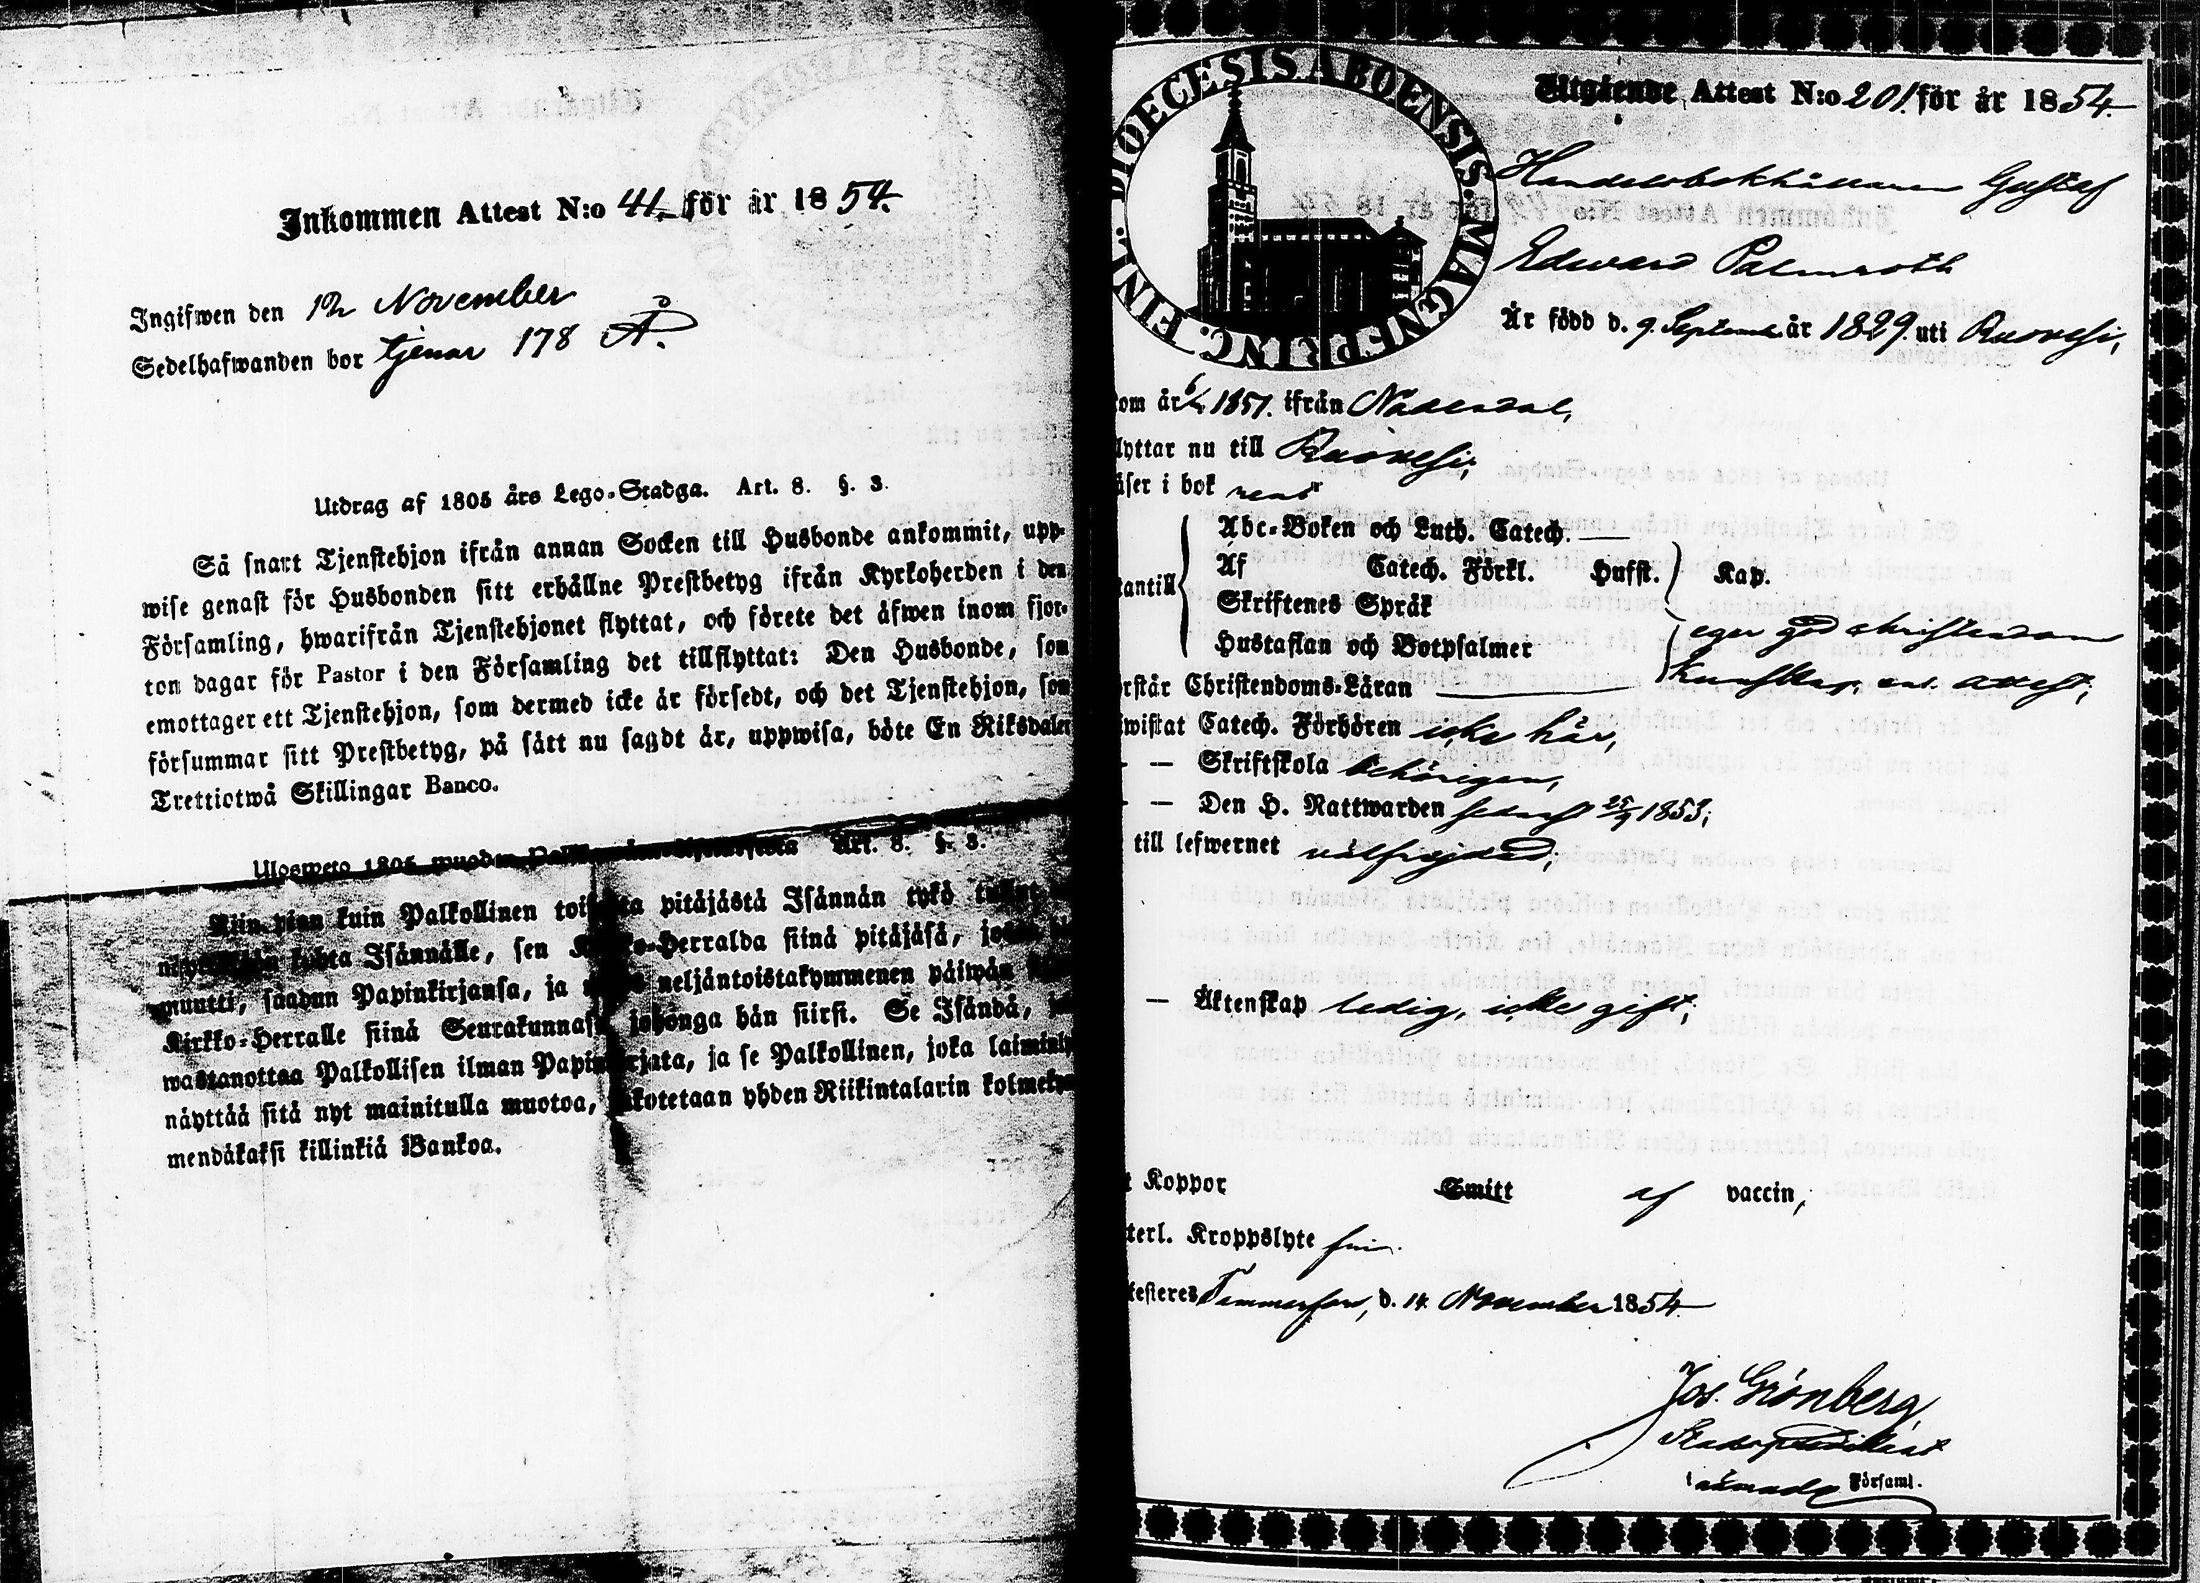 Inkommen Attest N:o 41. för år 1854.
Ingifwen den 12 November
Sedelhafwanden bor tjenar 178 Å.
Utdrag af 1805 års Lego-Stadga. Art. 8. §. 3.
Så snart Tjenstehjon ifrån annan Socken till Husbonde ankommit, upp-
wise genast för Husbonden sitt erhållne Prestbetyg ifrån Kyrkoherden i den
Församling, hwarifrån Tjenstehjonet flyttat, och förete det äfwen inom fjor-
ton dagar för Pastor i den Församling det tillflyttat: Den Husbonde, som
emottager ett Tjenstehjon, som dermed icke är försedt, och det Tjenstehjon, som
försummar sitt Prestbetyg, på sätt nu sagdt är, uppwisa, böte En Riksdaler
Trettiotwå Skillingar Banco.
Ulosweto 1805 wuoden Art. 8. §. 3.
Niin pian kuin Palkollinen pitäjästä Isännän tykö
kohta Isännälle, sen siinä pitäjäsä,
muutti, saadun Papinkirjansa, ja neljäntoistakymmenen päiwän
Kirkko-Herralle siinä Seurakunnasa, johonga hän siirsi. Se Isändä,
wastanottaa Palkollisen ilman Papinkirjata, ja se Palkollinen, joka
näyttää sitä nyt mainitulla muotoa, sakotetaan yhden Riikintalarin
mendäkaksi killinkiä Bankoa.
FINL. DIOECESIS ABOENSIS. MAGNI PRINC.
Utgående Attest N:o 201. för år 1854.
Handelsbokhållaren Gustaf
Edward Palmroth
Är född d. 9 September år 1829. uti Ruovesi,
om år 1851. ifrån Nådendal,
lyttar nu till Ruovesi;
äser i bok rent
Abc-Boken och Luth. Catech. —
tantill Af Catech. Förkl. Hufst. Kap.
Skriftenes Språk
Hustaflan och Botpsalmer eger god christendoms
rstår Christendoms-Läran kunskap, enl. attest;
wistat Catech. Förhören icke här,
— Skriftskola behörigen,
— Den H. Nattwarden senast 25/9 1853;
till lefwernet välfrejdad;
— Äktenskap ledig, icke gift;
Koppor Smitt af vaccin,
terl. Kroppslyte fri.
testeres Tammerfors, d. 14 November 1854
Jos. Grönberg,
Stadspredikant
Församl.